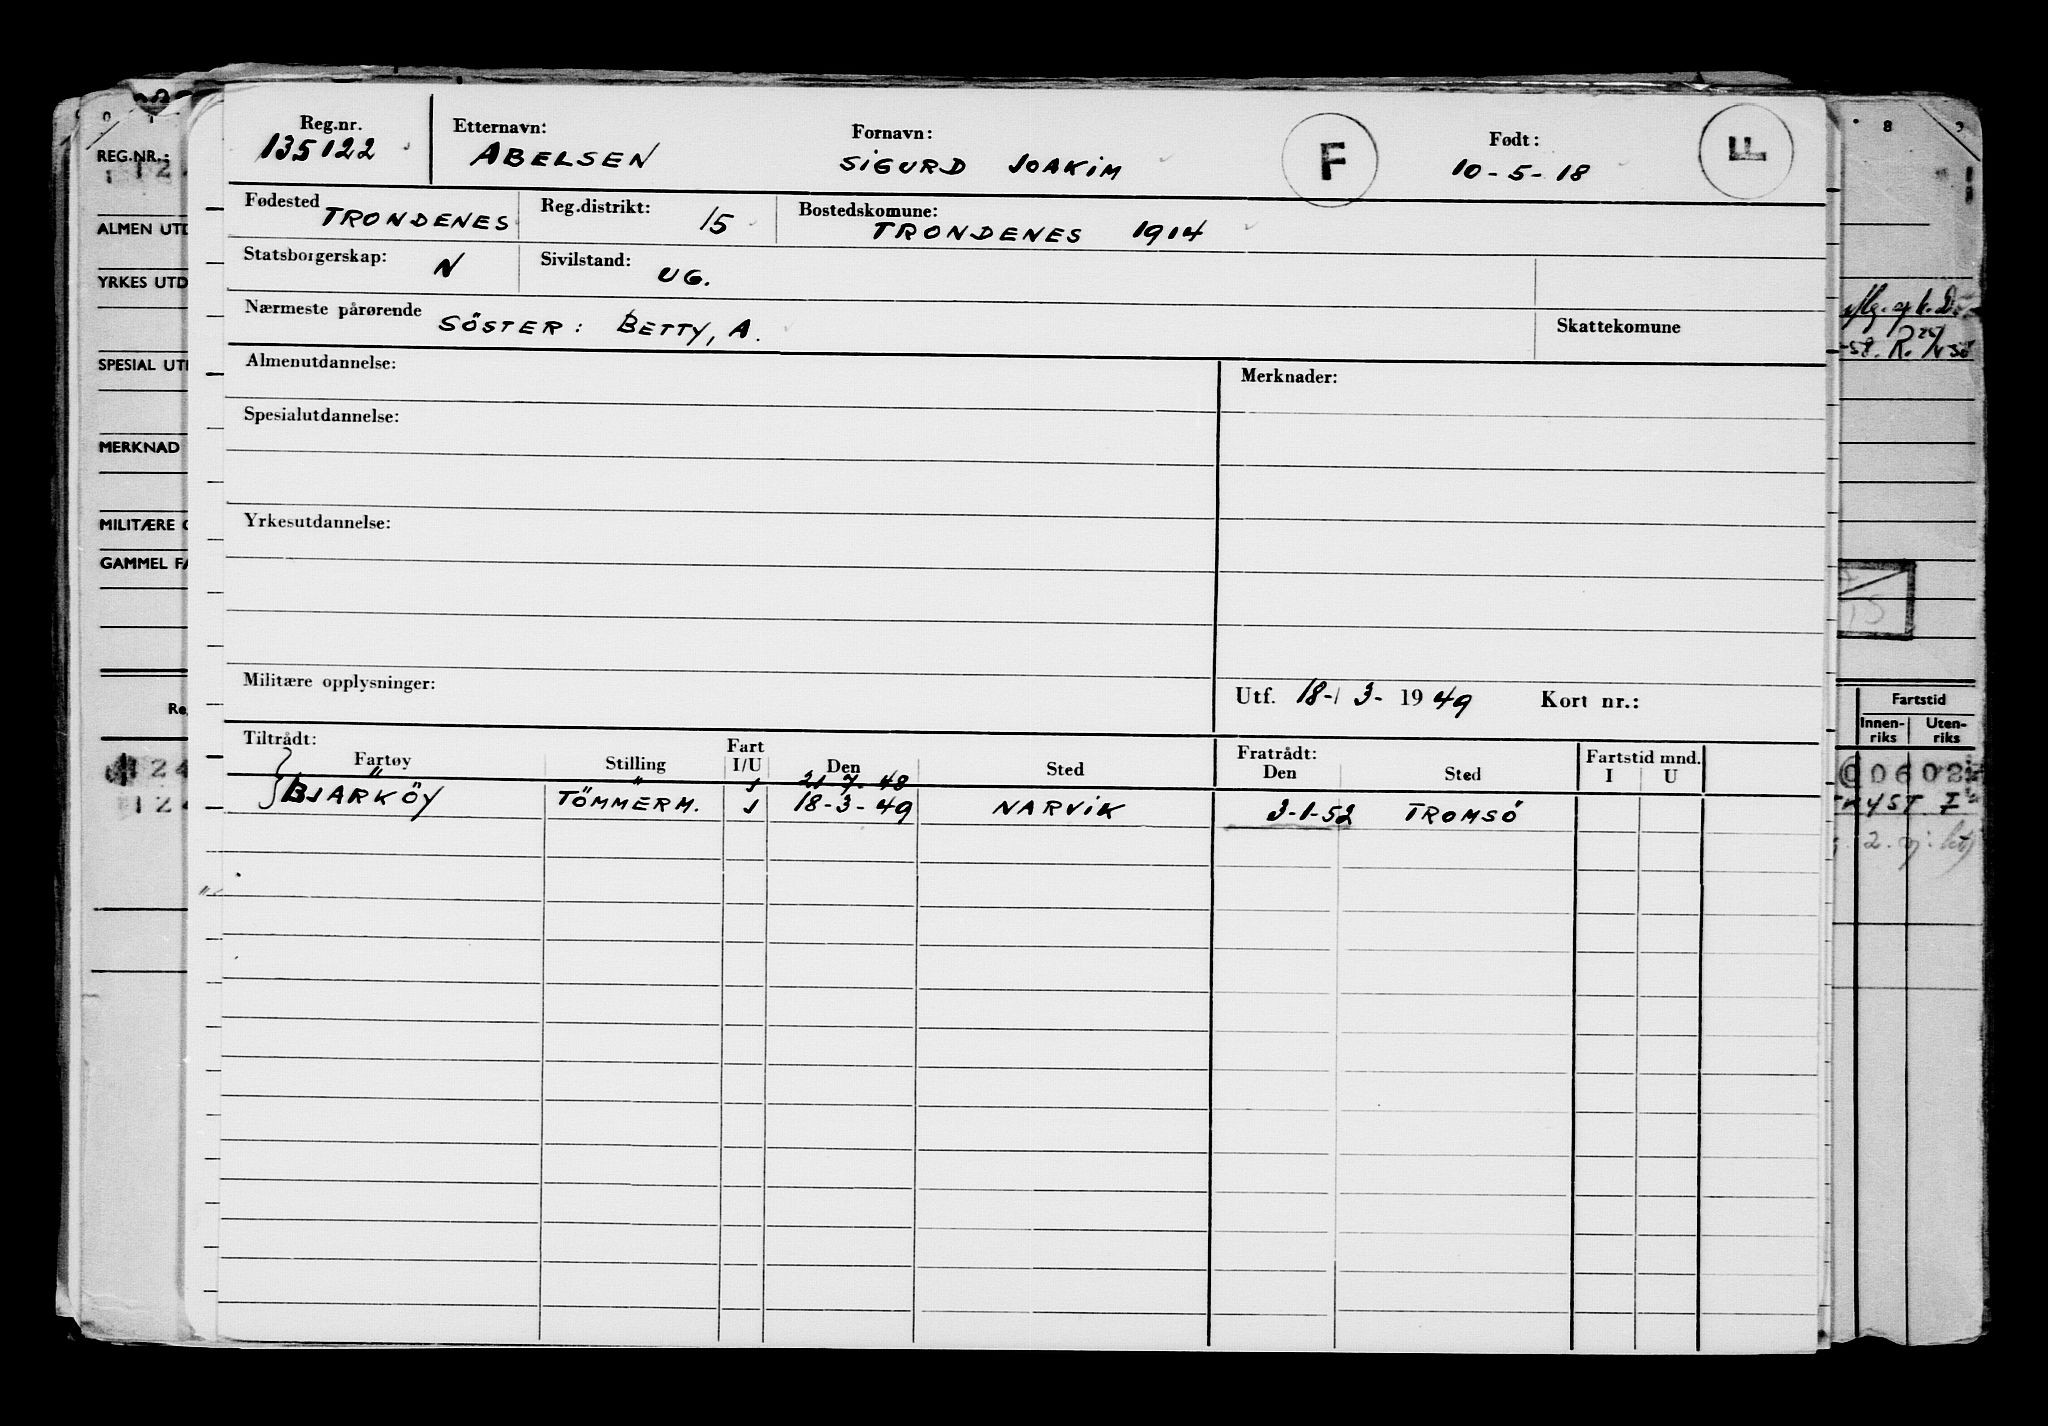 Reg.nr. Etternavn: Fornavn: F Født: F
135122 ABELSEN SIGURD JOAKIM 10-5-18
Fødested TRONDENES Reg.distrikt: 15 Bostedskomune: TRONDENES 1914
Statsborgerskap: N Sivilstand: UG.
Nærmeste pårørende SÖSTER: BETTY, A. Skattekomune
Almenutdannelse: Merknader:
Spesialutdannelse:
Yrkesutdannelse:
Militære opplysninger: Utf. 18-3-1949 Kort nr.:
Tiltrådt: Fart Fratrådt: Fartstid mnd.
Fartøy Stilling I/U Den Sted Den Sted I U
" " 21 7. 48
BJARKÖY TÖMMERM. 18-3-49 NARVIK 3-1-52 TROMSÖ
REG.NR.:
ALMEN UTD
YRKES UTD
SPESIAL UT
MERKNAD
MILITÆRE
GAMMEL FA
Re
1 2 4
1 2 4
8 9
-58. R.
15
Fartstid
Innen-riks Uten-riks
00602